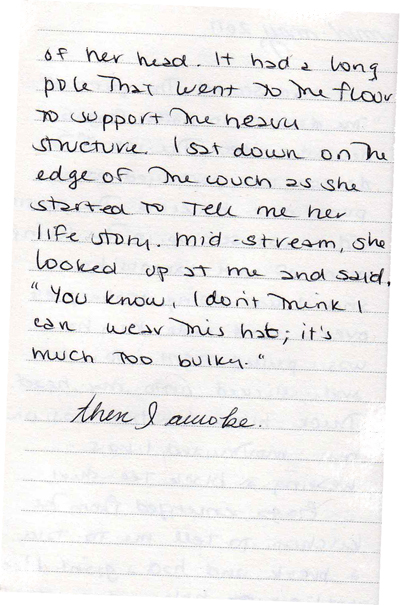 of her head. It had a long
pole that went to the floor
to support the heavy
structure. I sat down on the
edge of the couch as she
started to tell me her
life story. mid-stream, she
looked up at me and said,
"You know, I don't think I
can wear this hat; it's
much too bulky."
then I awoke.